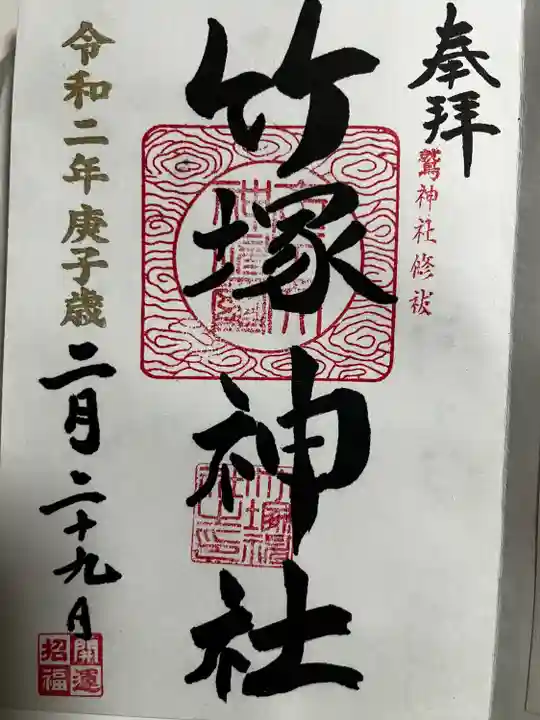 奉拝
鷲神社修祓
竹塚神社
令和二年庚子歳二月二十九日
開運
招福